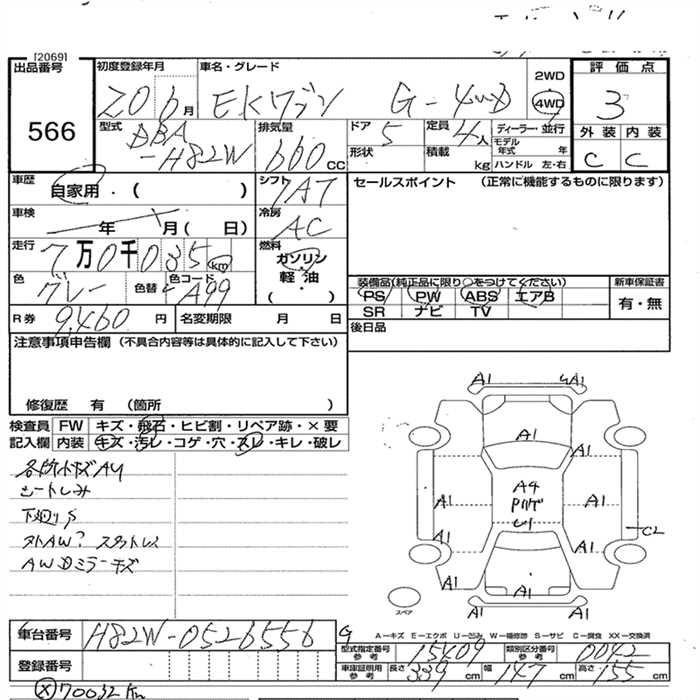 [2069]
出品番号 566
初度登録年月 20 6月
車名・グレード EKワゴン G-4WD
2WD
4WD
評価点 3
外装 内装
C C
型式 DBA-H82W
排気量 660CC
ドア 5
形状
定員 4人
積載 kg
ディーラー・並行
モデル年式 年
ハンドル 左・右
車歴 自家用・( )
シフト 7AT
車検 年 月( 日)
冷房 AC
走行 7万0千035km
燃料 ガソリン・軽油 ( )
色 グレー 色替 色コード A99
R券 9,460円 名変期限 月 日
セールスポイント (正常に機能するものに限ります)
装備品(純正品に限り○をつけてください) 新車保証書
PS PW ABS エアB 有・無
SR ナビ TV
後日品
注意事項申告欄 (不具合内容等は具体的に記入して下さい)
修復歴 有 (箇所 )
検査員記入欄
FW キズ・飛石・ヒビ割・リペア跡・×要
内装 キズ・汚レ・コゲ・穴・スレ・キレ・破レ
各所小キズAU
シートしみ
下廻りS
AWDミラーキズ
A1 A1
A1
A1 A1
A4
A1 A1
U1
C2
A1 A1
A1 A1
A1
A1 A1
スペア
A－キズ E－エクボ U－凹み W－補修跡 S－サビ C－腐食 XX－交換済
車台番号 H82W-0526556
登録番号
型式指定番号参考 15409 類別区分番号参考 0042
車庫証明用参考 長さ 339cm 幅 147cm 高さ 155cm
ⓧ70032km